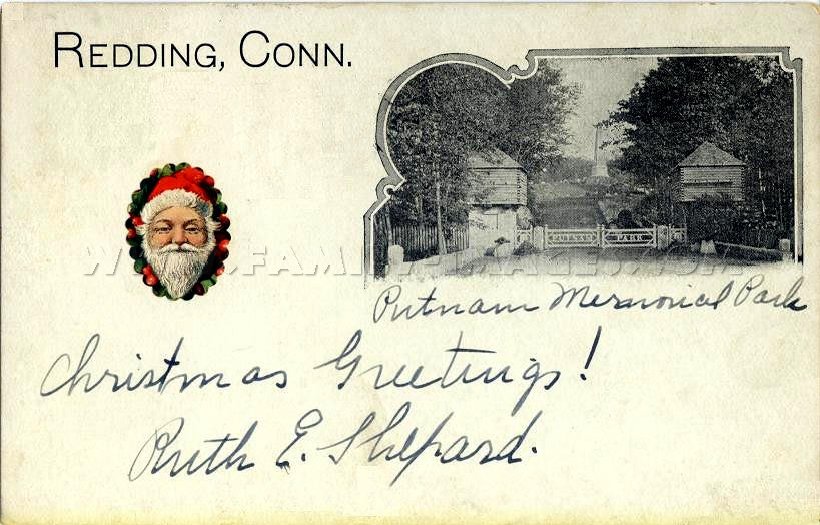 REDDING, CONN.
PUTNAM PARK
WWW.FAMILYIMAGES.COM
Putnam Memorial Park
Christmas Greetings!
Ruth E. Shepard.